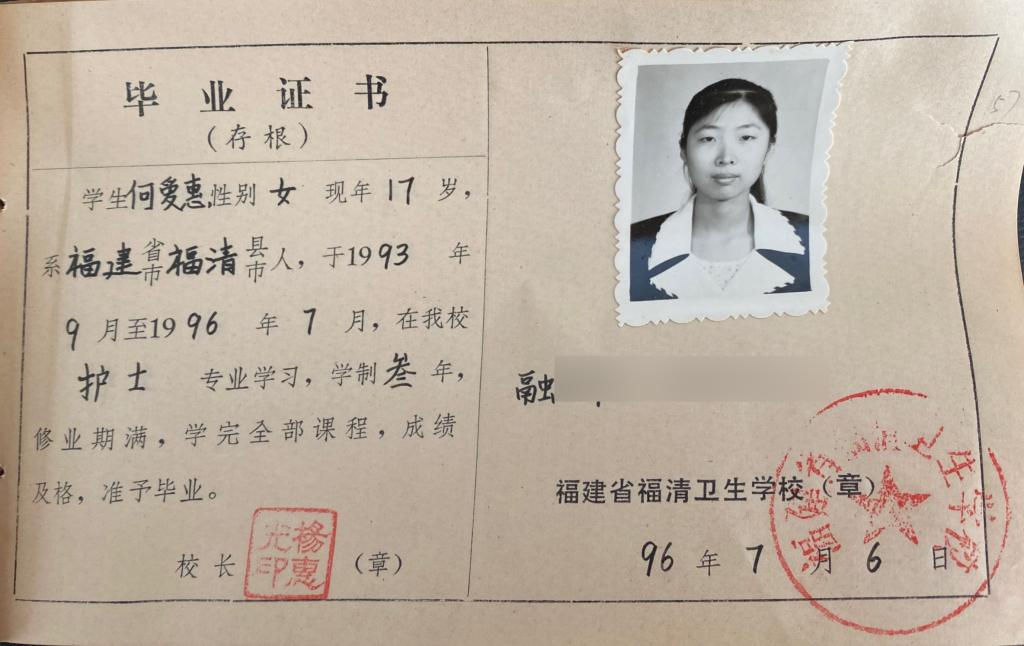 毕业证书
（存根）
学生何爱惠性别女 现年17岁，
系福建省市福清县市人，于1993年
9月至1996年7月，在我校
护士 专业学习，学制叁年，
修业期满，学完全部课程，成绩
及格，准予毕业。
校长（章）
楊惠光印
57
融
福建省福清卫生学校（章）
福建省福清卫生学校
96年7月6日